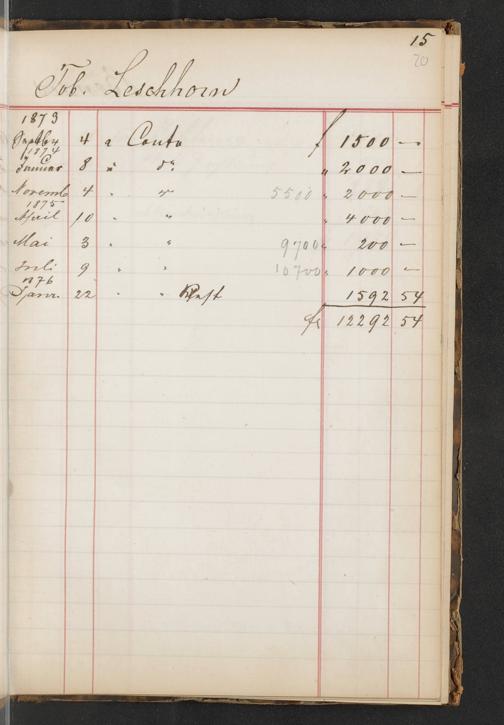 15
20
Tob. Leschhorn
1873
Septbr 4 a Conto f 1500 —
1874
Januar 8 " do " 2000 —
Novemb 4 " " 5500 " 2000 —
1875
April 10 " " " 4000 —
Mai 3 " " 9700 " 200 —
Juli 9 " " 10700 " 1000 —
1876
Janr. 22 " " Rest 1592 54
fs 12292 54